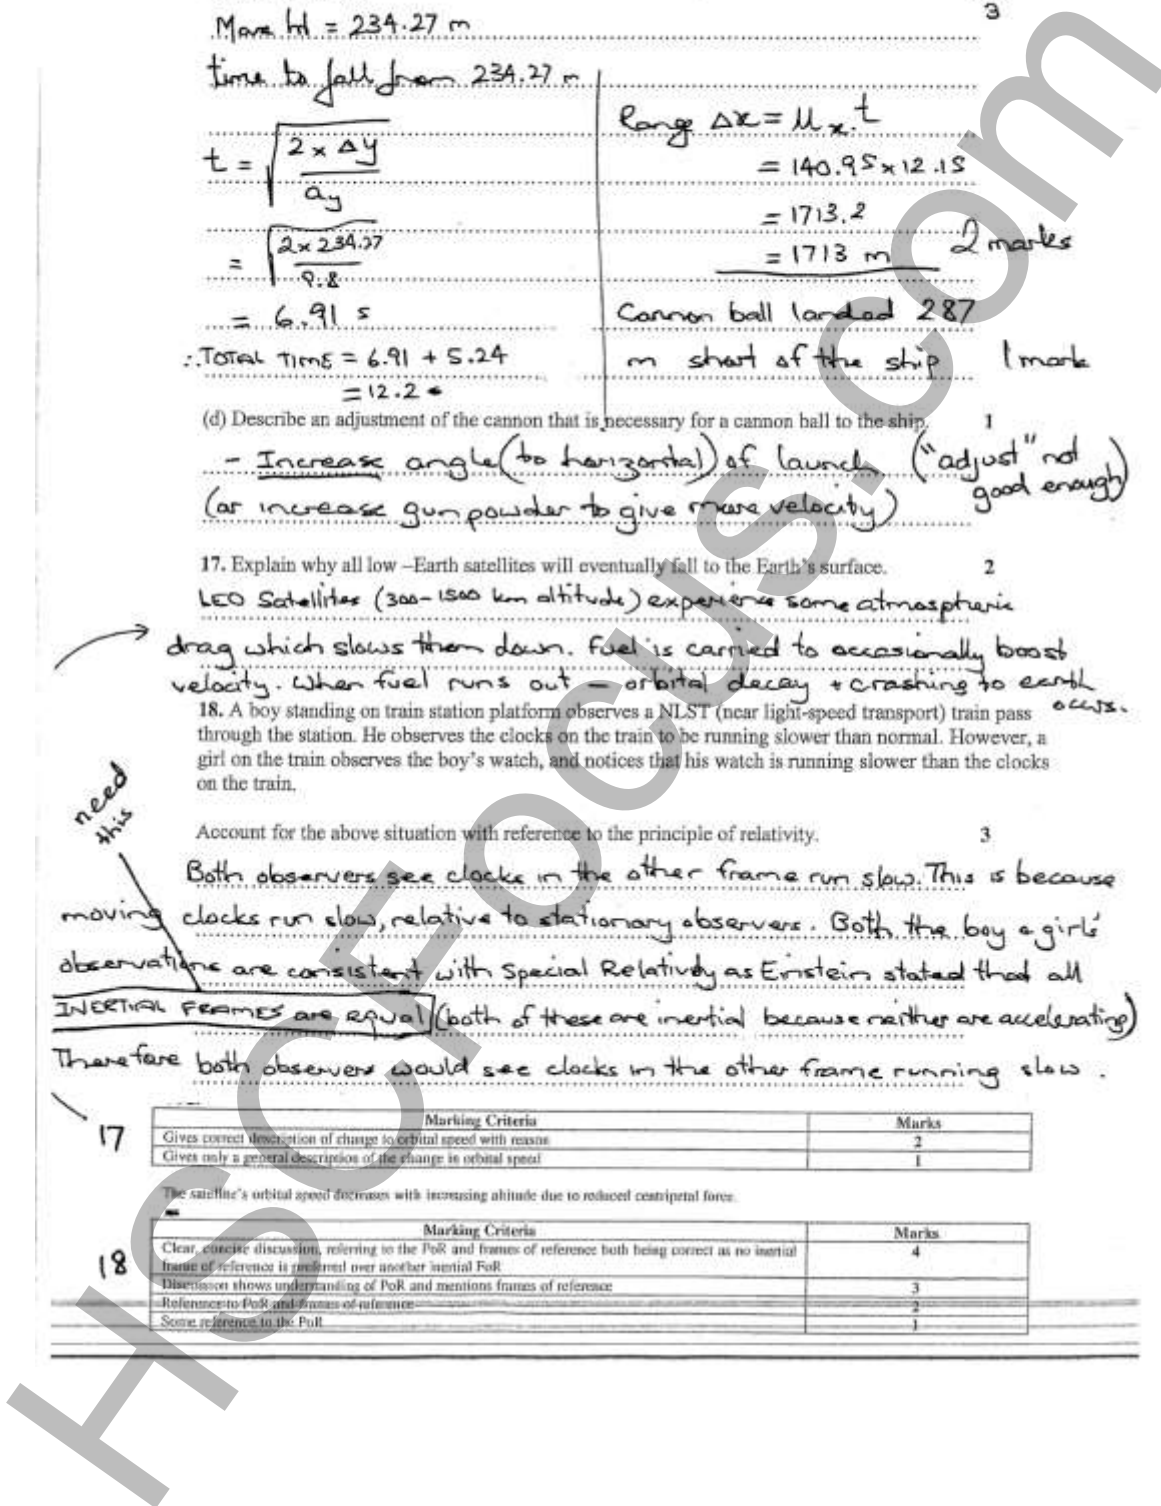 Max ht = 234.27 m
3
time to fall from 234.27 m
t = √(2 × Δy / ay)
= √(2 × 234.27 / 9.8)
= 6.91 s
∴ TOTAL TIME = 6.91 + 5.24
= 12.2 s
Range Δx = ux.t
= 140.95 × 12.15
= 1713.2
= 1713 m
2 marks
Cannon ball landed 287
m short of the ship
1 mark
(d) Describe an adjustment of the cannon that is necessary for a cannon ball to the ship. 1
- Increase angle (to horizontal) of launch ("adjust" not
good enough)
(or increase gunpowder to give more velocity)
17. Explain why all low –Earth satellites will eventually fall to the Earth's surface. 2
LEO Satellites (300-1500 km altitude) experience some atmospheric
drag which slows them down. Fuel is carried to occasionally boost
velocity. When fuel runs out – orbital decay + crashing to earth
occurs.
18. A boy standing on train station platform observes a NLST (near light-speed transport) train pass
through the station. He observes the clocks on the train to be running slower than normal. However, a
girl on the train observes the boy's watch, and notices that his watch is running slower than the clocks
on the train.
need
this
Account for the above situation with reference to the principle of relativity. 3
Both observers see clocks in the other frame run slow. This is because
moving clocks run slow, relative to stationary observers. Both the boy & girls'
observations are consistent with Special Relativity as Einstein stated that all
INERTIAL FRAMES are equal (both of these are inertial because neither are accelerating)
Therefore both observers would see clocks in the other frame running slow.
17
Marking Criteria Marks
Gives correct description of change to orbital speed with reason 2
Gives only a general description of the change in orbital speed 1
The satellite's orbital speed decreases with increasing altitude due to reduced centripetal force.
18
Marking Criteria Marks
Clear, concise discussion, referring to the PoR and frames of reference both being correct as no inertial 4
frame of reference is preferred over another inertial FoR
Discussion shows understanding of PoR and mentions frames of reference 3
Reference to PoR and frames of reference 2
Some reference to the PoR 1
HSCFocus.com